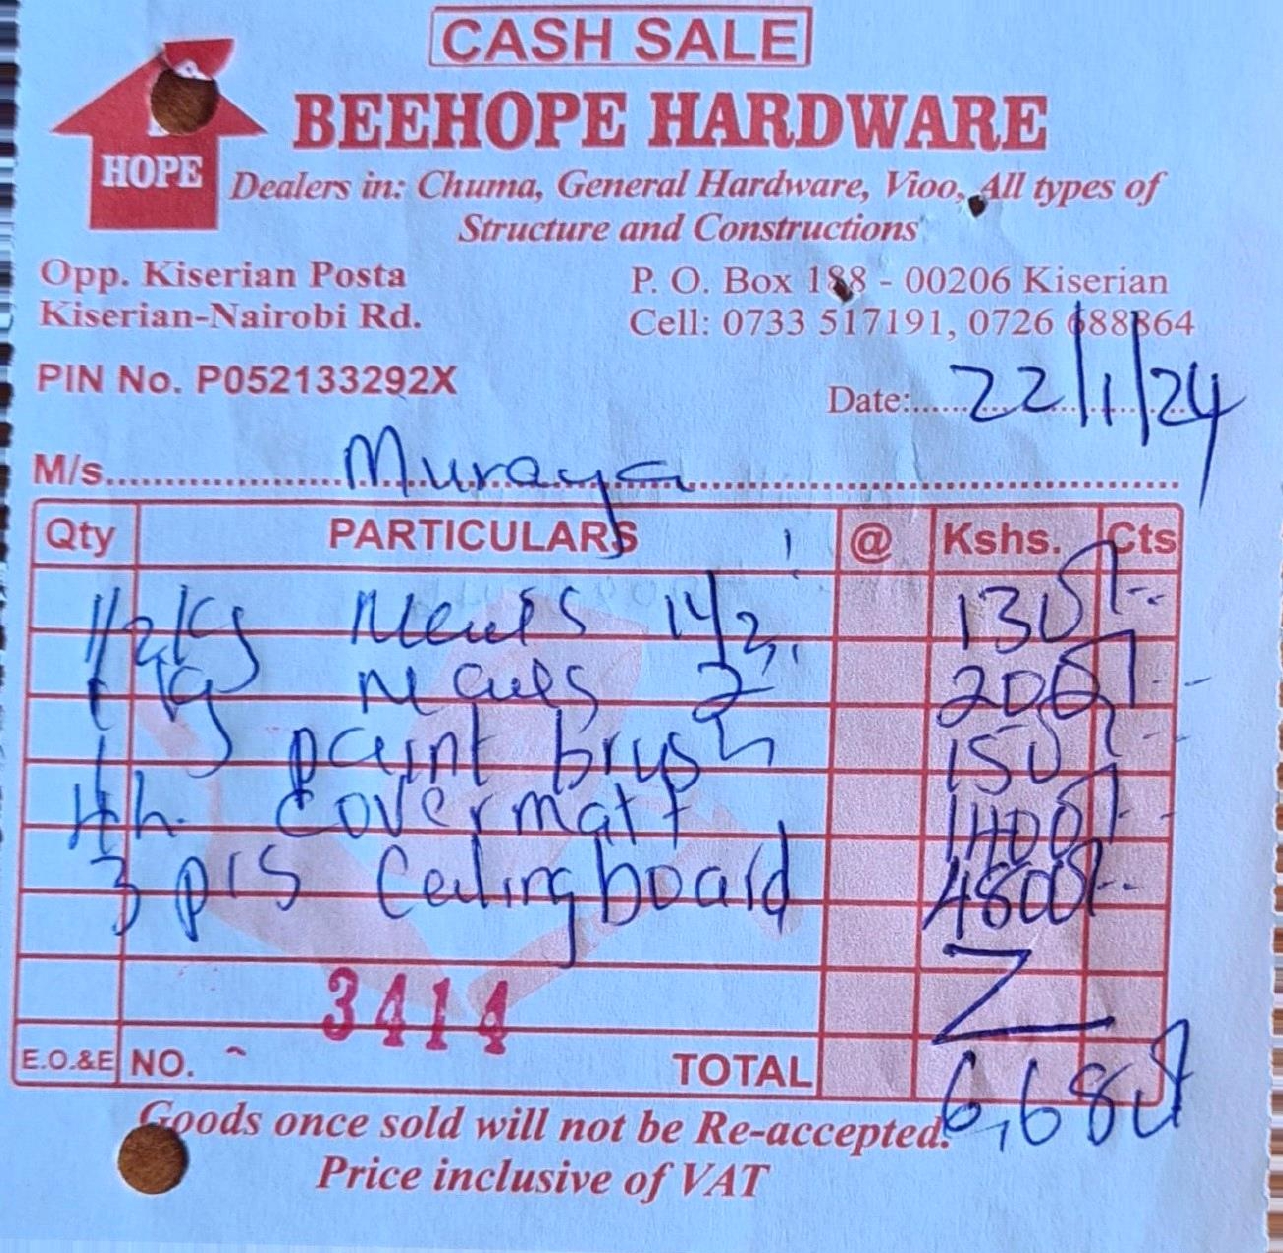 CASH SALE
HOPE
BEEHOPE HARDWARE
Dealers in: Chuma, General Hardware, Vioo, All types of
Structure and Constructions
Opp. Kiserian Posta
Kiserian-Nairobi Rd.
P. O. Box 188 - 00206 Kiserian
Cell: 0733 517191, 0726 688864
PIN No. P052133292X
Date: 22/1/24
M/s Muraya
Qty PARTICULARS @ Kshs. Cts
1/2kg Nails 1 1/2" 130/-
1kg Nails 2" 200/-
1 paint brush 150/-
4h. Covermatt 1400/-
3 pcs Ceilingboard 4800/-
3414
E.O.&E NO. TOTAL 6,680/
Goods once sold will not be Re-accepted.
Price inclusive of VAT